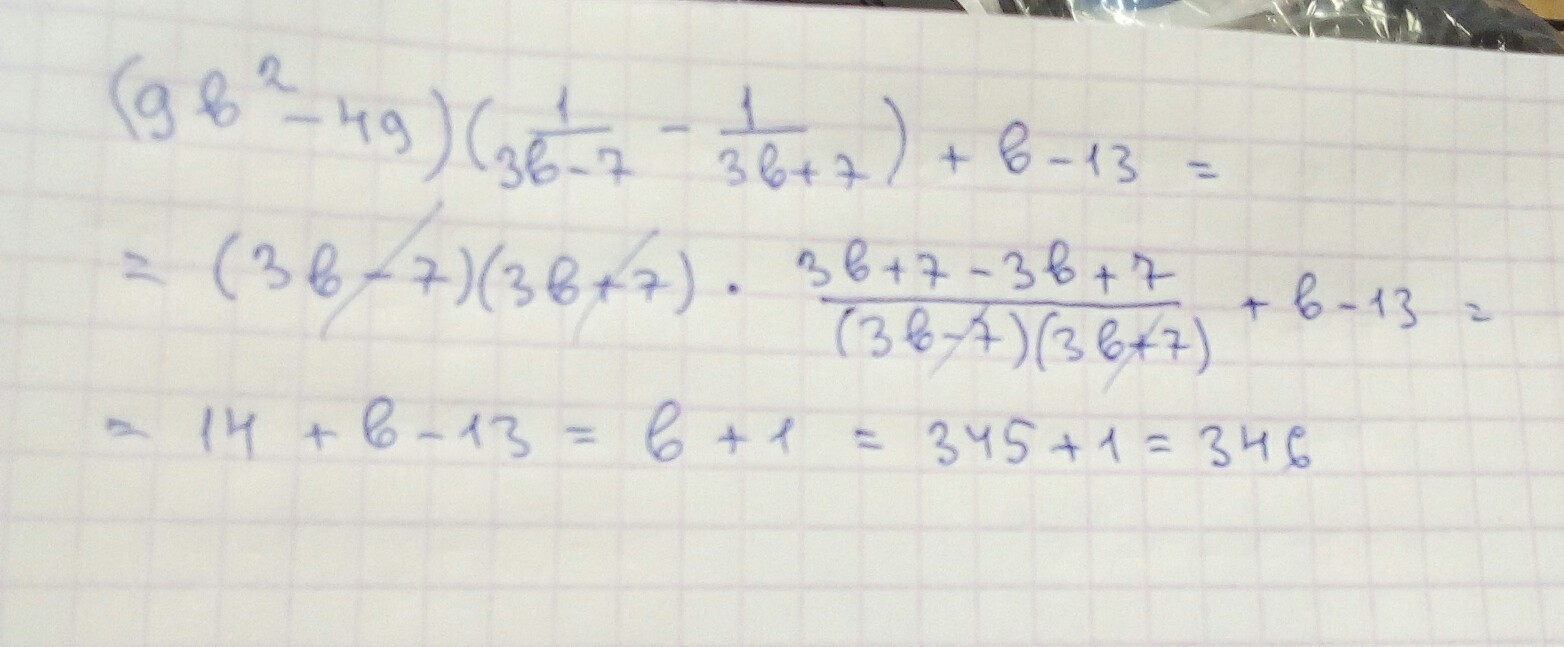 (9b²-49)(1/(3b-7) - 1/(3b+7)) + b-13 =
= (3b-7)(3b+7) · (3b+7-3b+7)/((3b-7)(3b+7)) + b-13 =
= 14 + b-13 = b+1 = 345+1 = 346